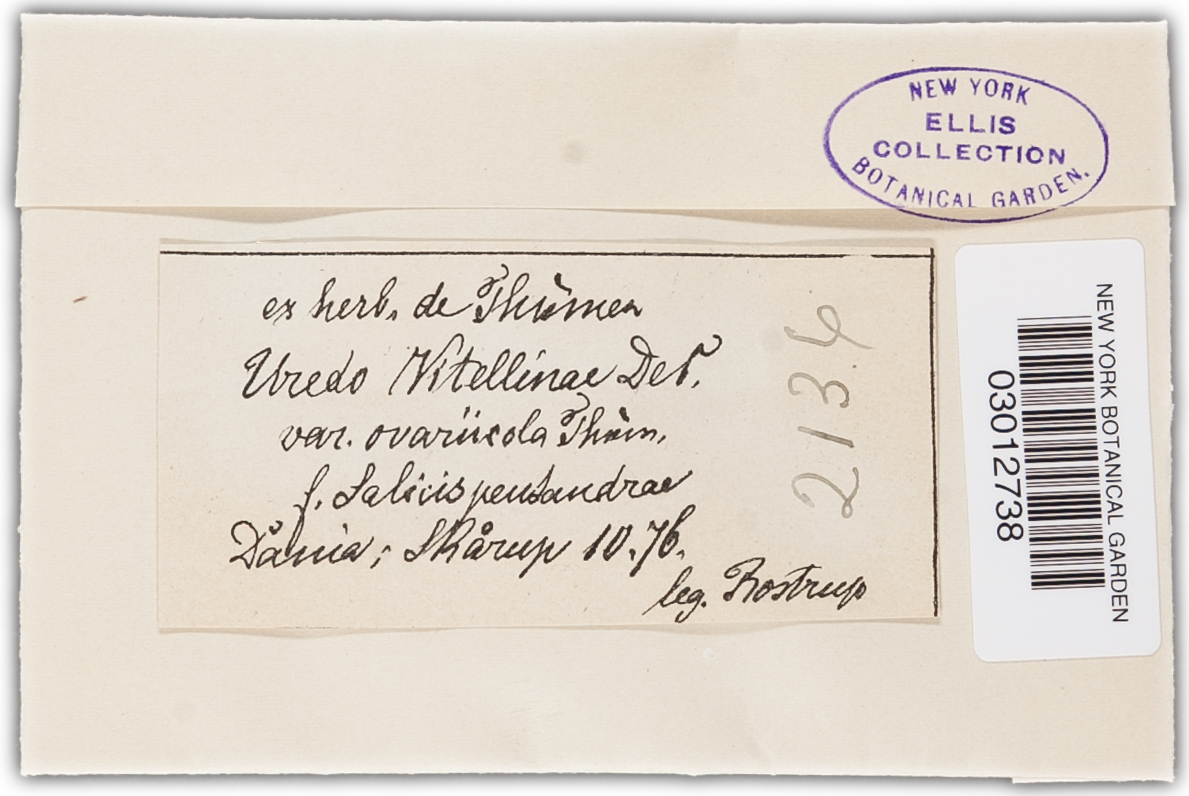 NEW YORK
ELLIS
COLLECTION
BOTANICAL GARDEN.
ex herb. de Thümen
Uredo Vitellinae DeC.
var. ovariicola Thüm.
f. Salicis pentandrae
Dania; Skårup 10.76.
leg. Rostrup
2134
NEW YORK BOTANICAL GARDEN
03012738